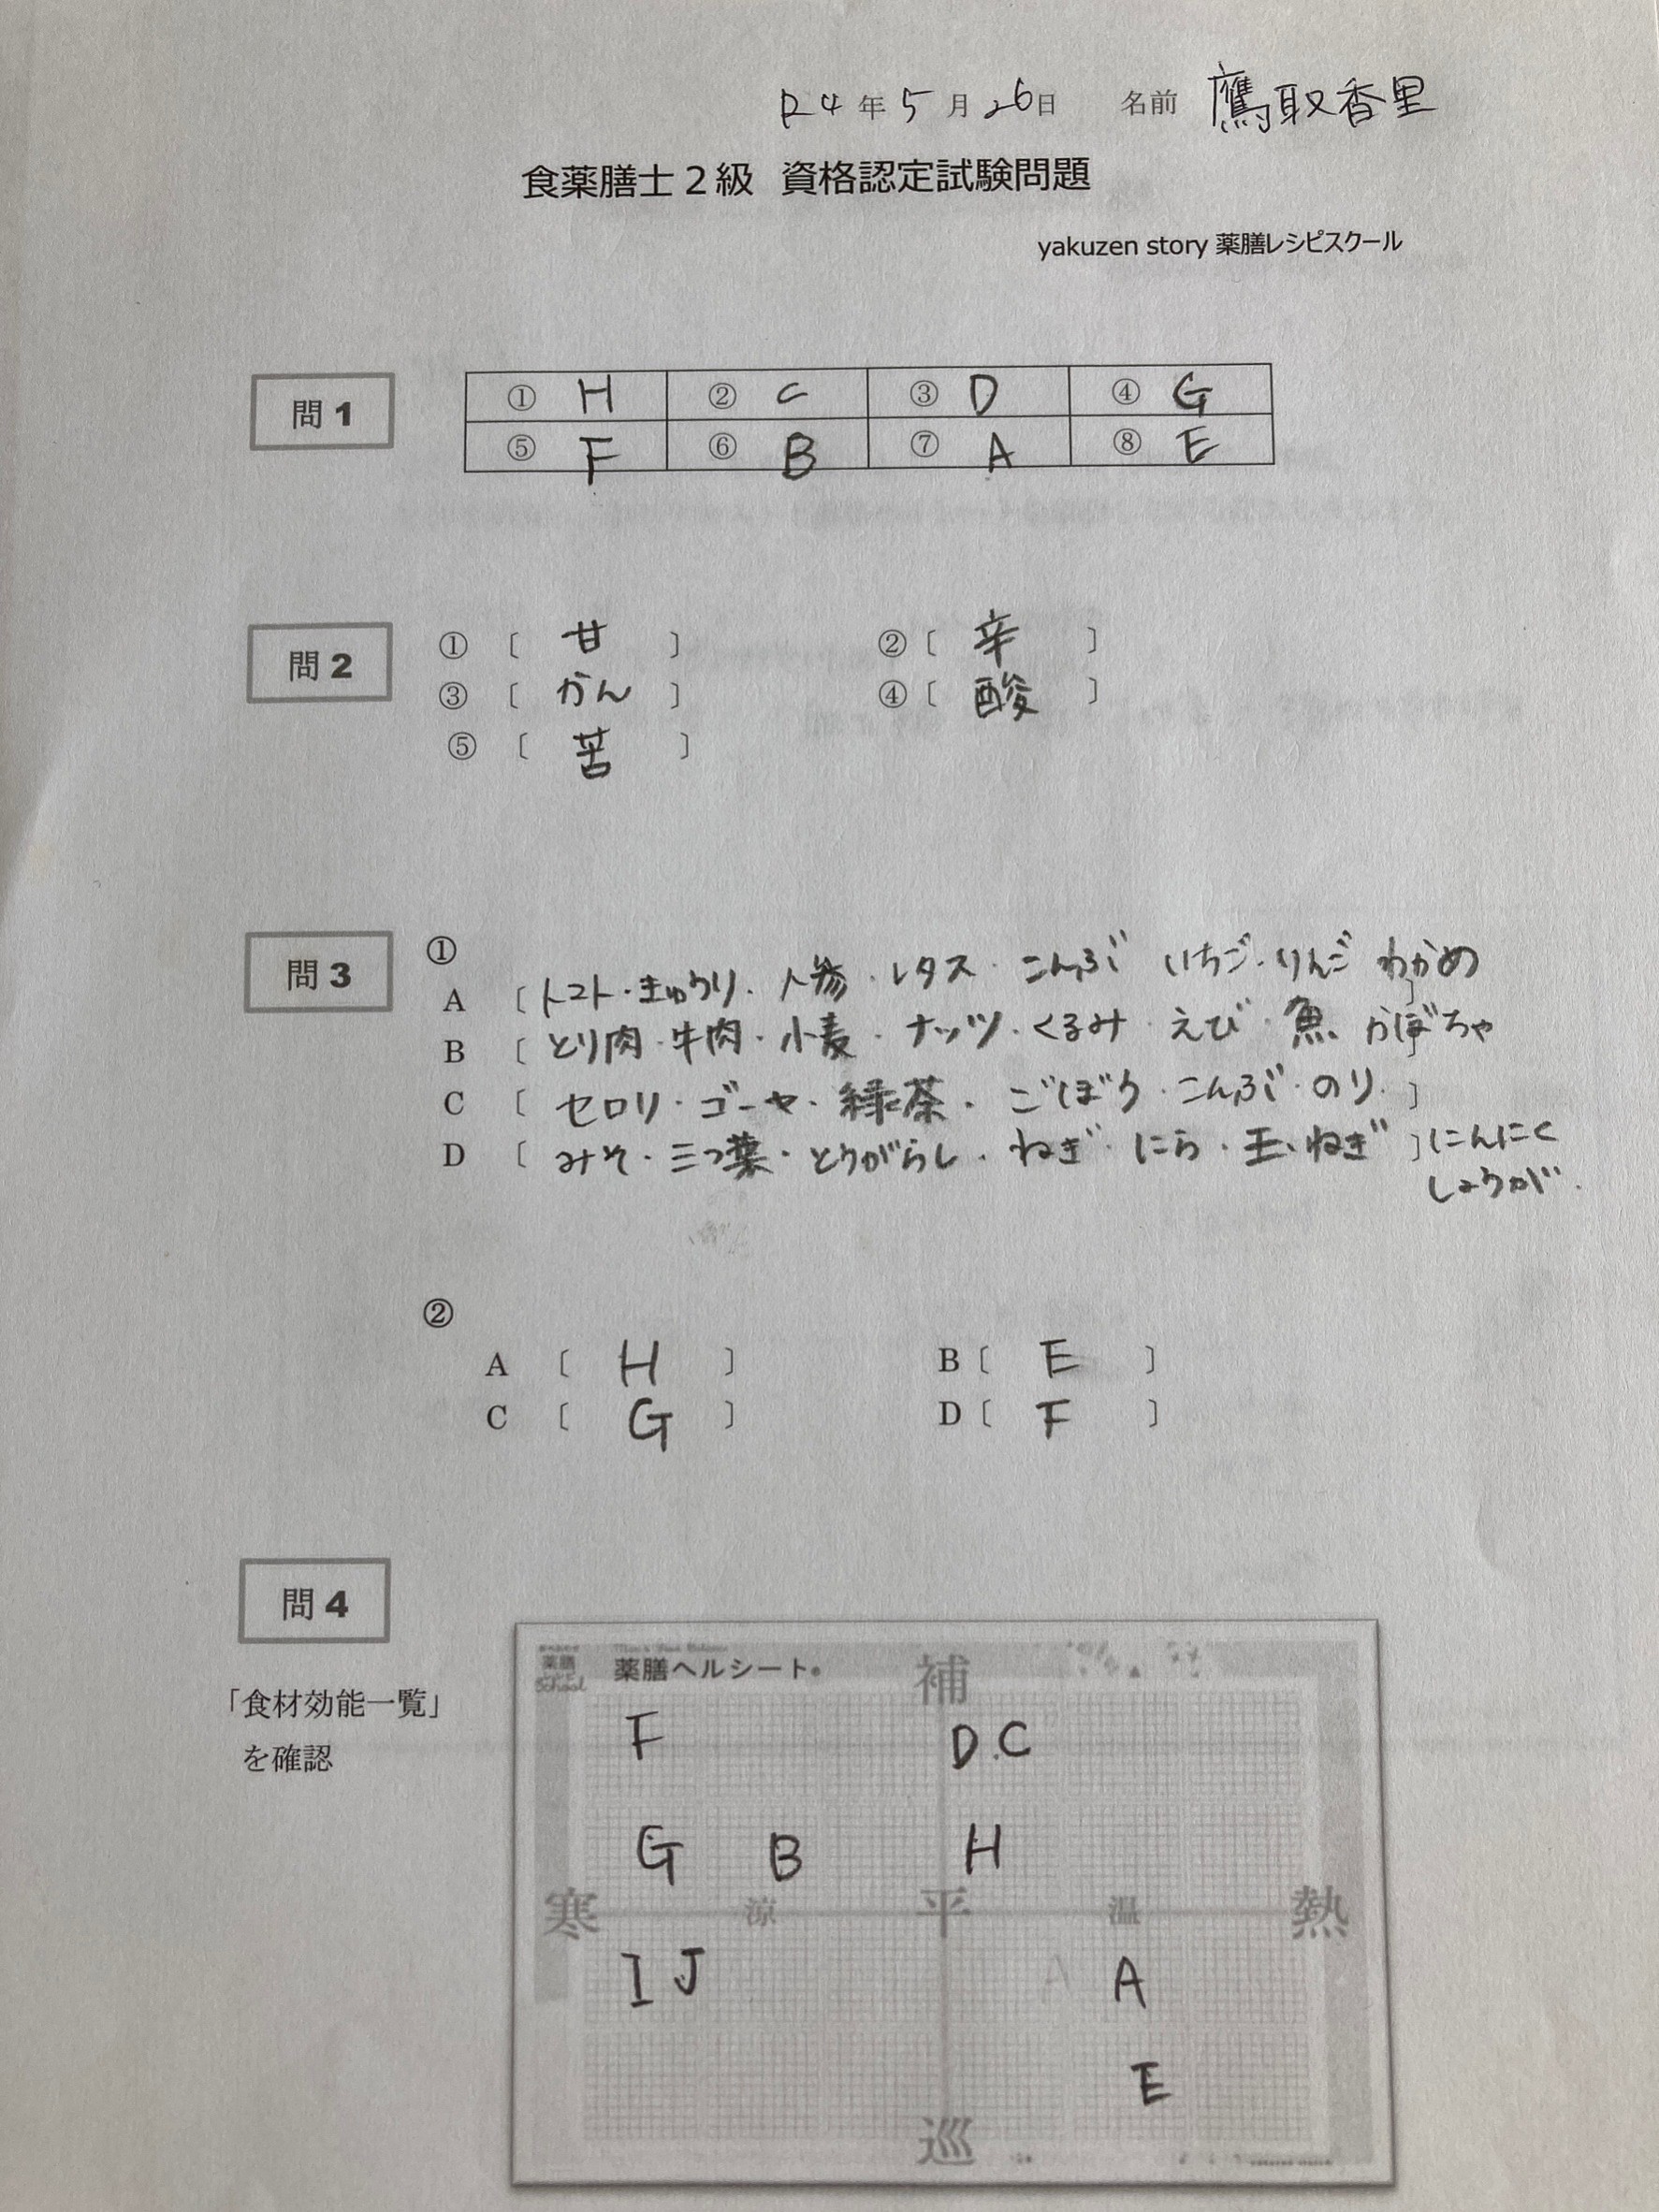 R4年5月26日 名前 鷹取香里
食薬膳士２級 資格認定試験問題
yakuzen story 薬膳レシピスクール
問1
① H ② C ③ D ④ G
⑤ F ⑥ B ⑦ A ⑧ E
問2
① 〔 甘 〕 ② 〔 辛 〕
③ 〔 かん 〕 ④ 〔 酸 〕
⑤ 〔 苦 〕
問3
①
A 〔 トマト・きゅうり・人参・レタス・こんぶ いちご・りんご わかめ 〕
B 〔 とり肉・牛肉・小麦・ナッツ・くるみ・えび・魚 かぼちゃ 〕
C 〔 セロリ・ゴーヤ・緑茶・ごぼう・こんぶ・のり・ 〕
D 〔 みそ・三つ葉・とうがらし・ねぎ・にら・玉ねぎ 〕にんにく
しょうが・
②
A 〔 H 〕 B 〔 E 〕
C 〔 G 〕 D 〔 F 〕
問4
「食材効能一覧」
を確認
薬膳
School
薬膳ヘルシート
補
F D.C
G B H
寒 涼 平 温 熱
I J A
E
巡